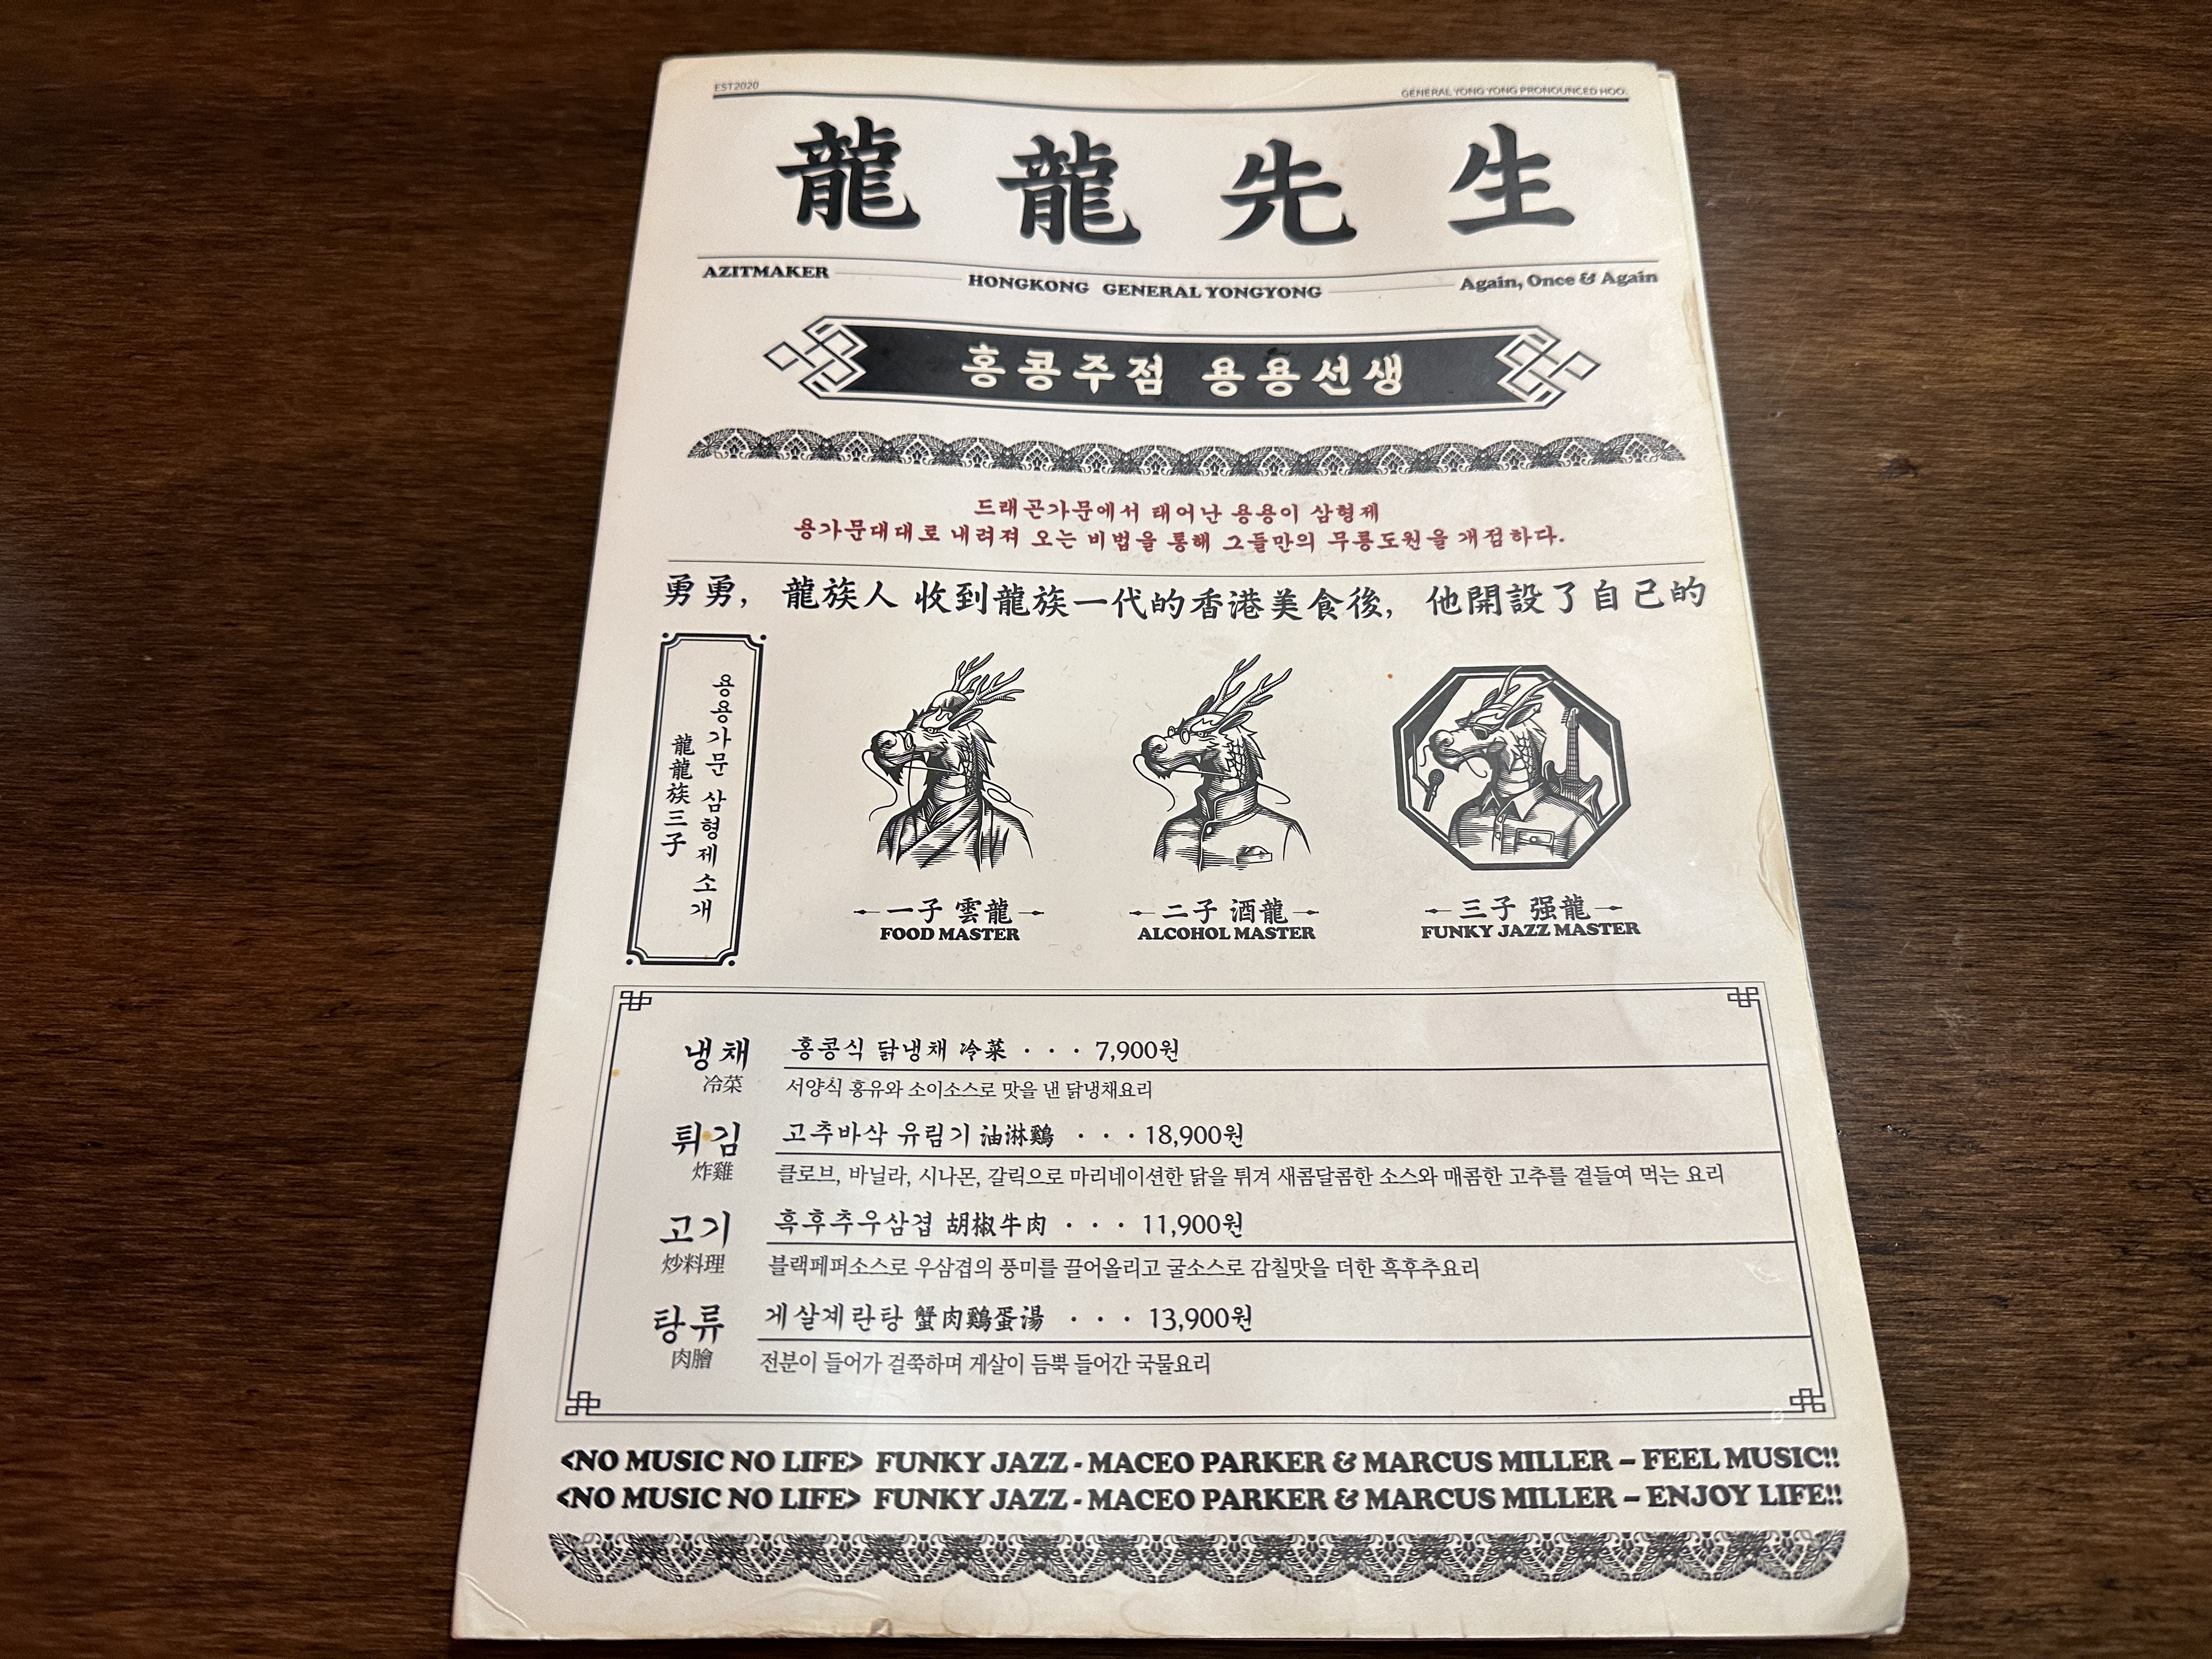 EST2020
GENERAL YONG YONG PRONOUNCED HOO.
龍龍先生
AZITMAKER
HONGKONG GENERAL YONGYONG
Again, Once & Again
홍콩주점 용용선생
드래곤가문에서 태어난 용용이 삼형제
용가문대대로 내려져 오는 비법을 통해 그들만의 무릉도원을 개점하다.
勇勇, 龍族人 收到龍族一代的香港美食後, 他開設了自己的
용용가문 삼형제 소개
龍龍族三子
一子 雲龍
FOOD MASTER
二子 酒龍
ALCOHOL MASTER
三子 强龍
FUNKY JAZZ MASTER
냉채 홍콩식 닭냉채 冷菜 · · · 7,900원
冷菜 서양식 홍유와 소이소스로 맛을 낸 닭냉채요리
튀김 고추바삭 유림기 油淋鷄 · · · 18,900원
炸雞 클로브, 바닐라, 시나몬, 갈릭으로 마리네이션한 닭을 튀겨 새콤달콤한 소스와 매콤한 고추를 곁들여 먹는 요리
고기 흑후추우삼겹 胡椒牛肉 · · · 11,900원
炒料理 블랙페퍼소스로 우삼겹의 풍미를 끌어올리고 굴소스로 감칠맛을 더한 흑후추요리
탕류 게살계란탕 蟹肉鷄蛋湯 · · · 13,900원
肉膾 전분이 들어가 걸쭉하며 게살이 듬뿍 들어간 국물요리
<NO MUSIC NO LIFE> FUNKY JAZZ - MACEO PARKER & MARCUS MILLER – FEEL MUSIC!!
<NO MUSIC NO LIFE> FUNKY JAZZ - MACEO PARKER & MARCUS MILLER – ENJOY LIFE!!